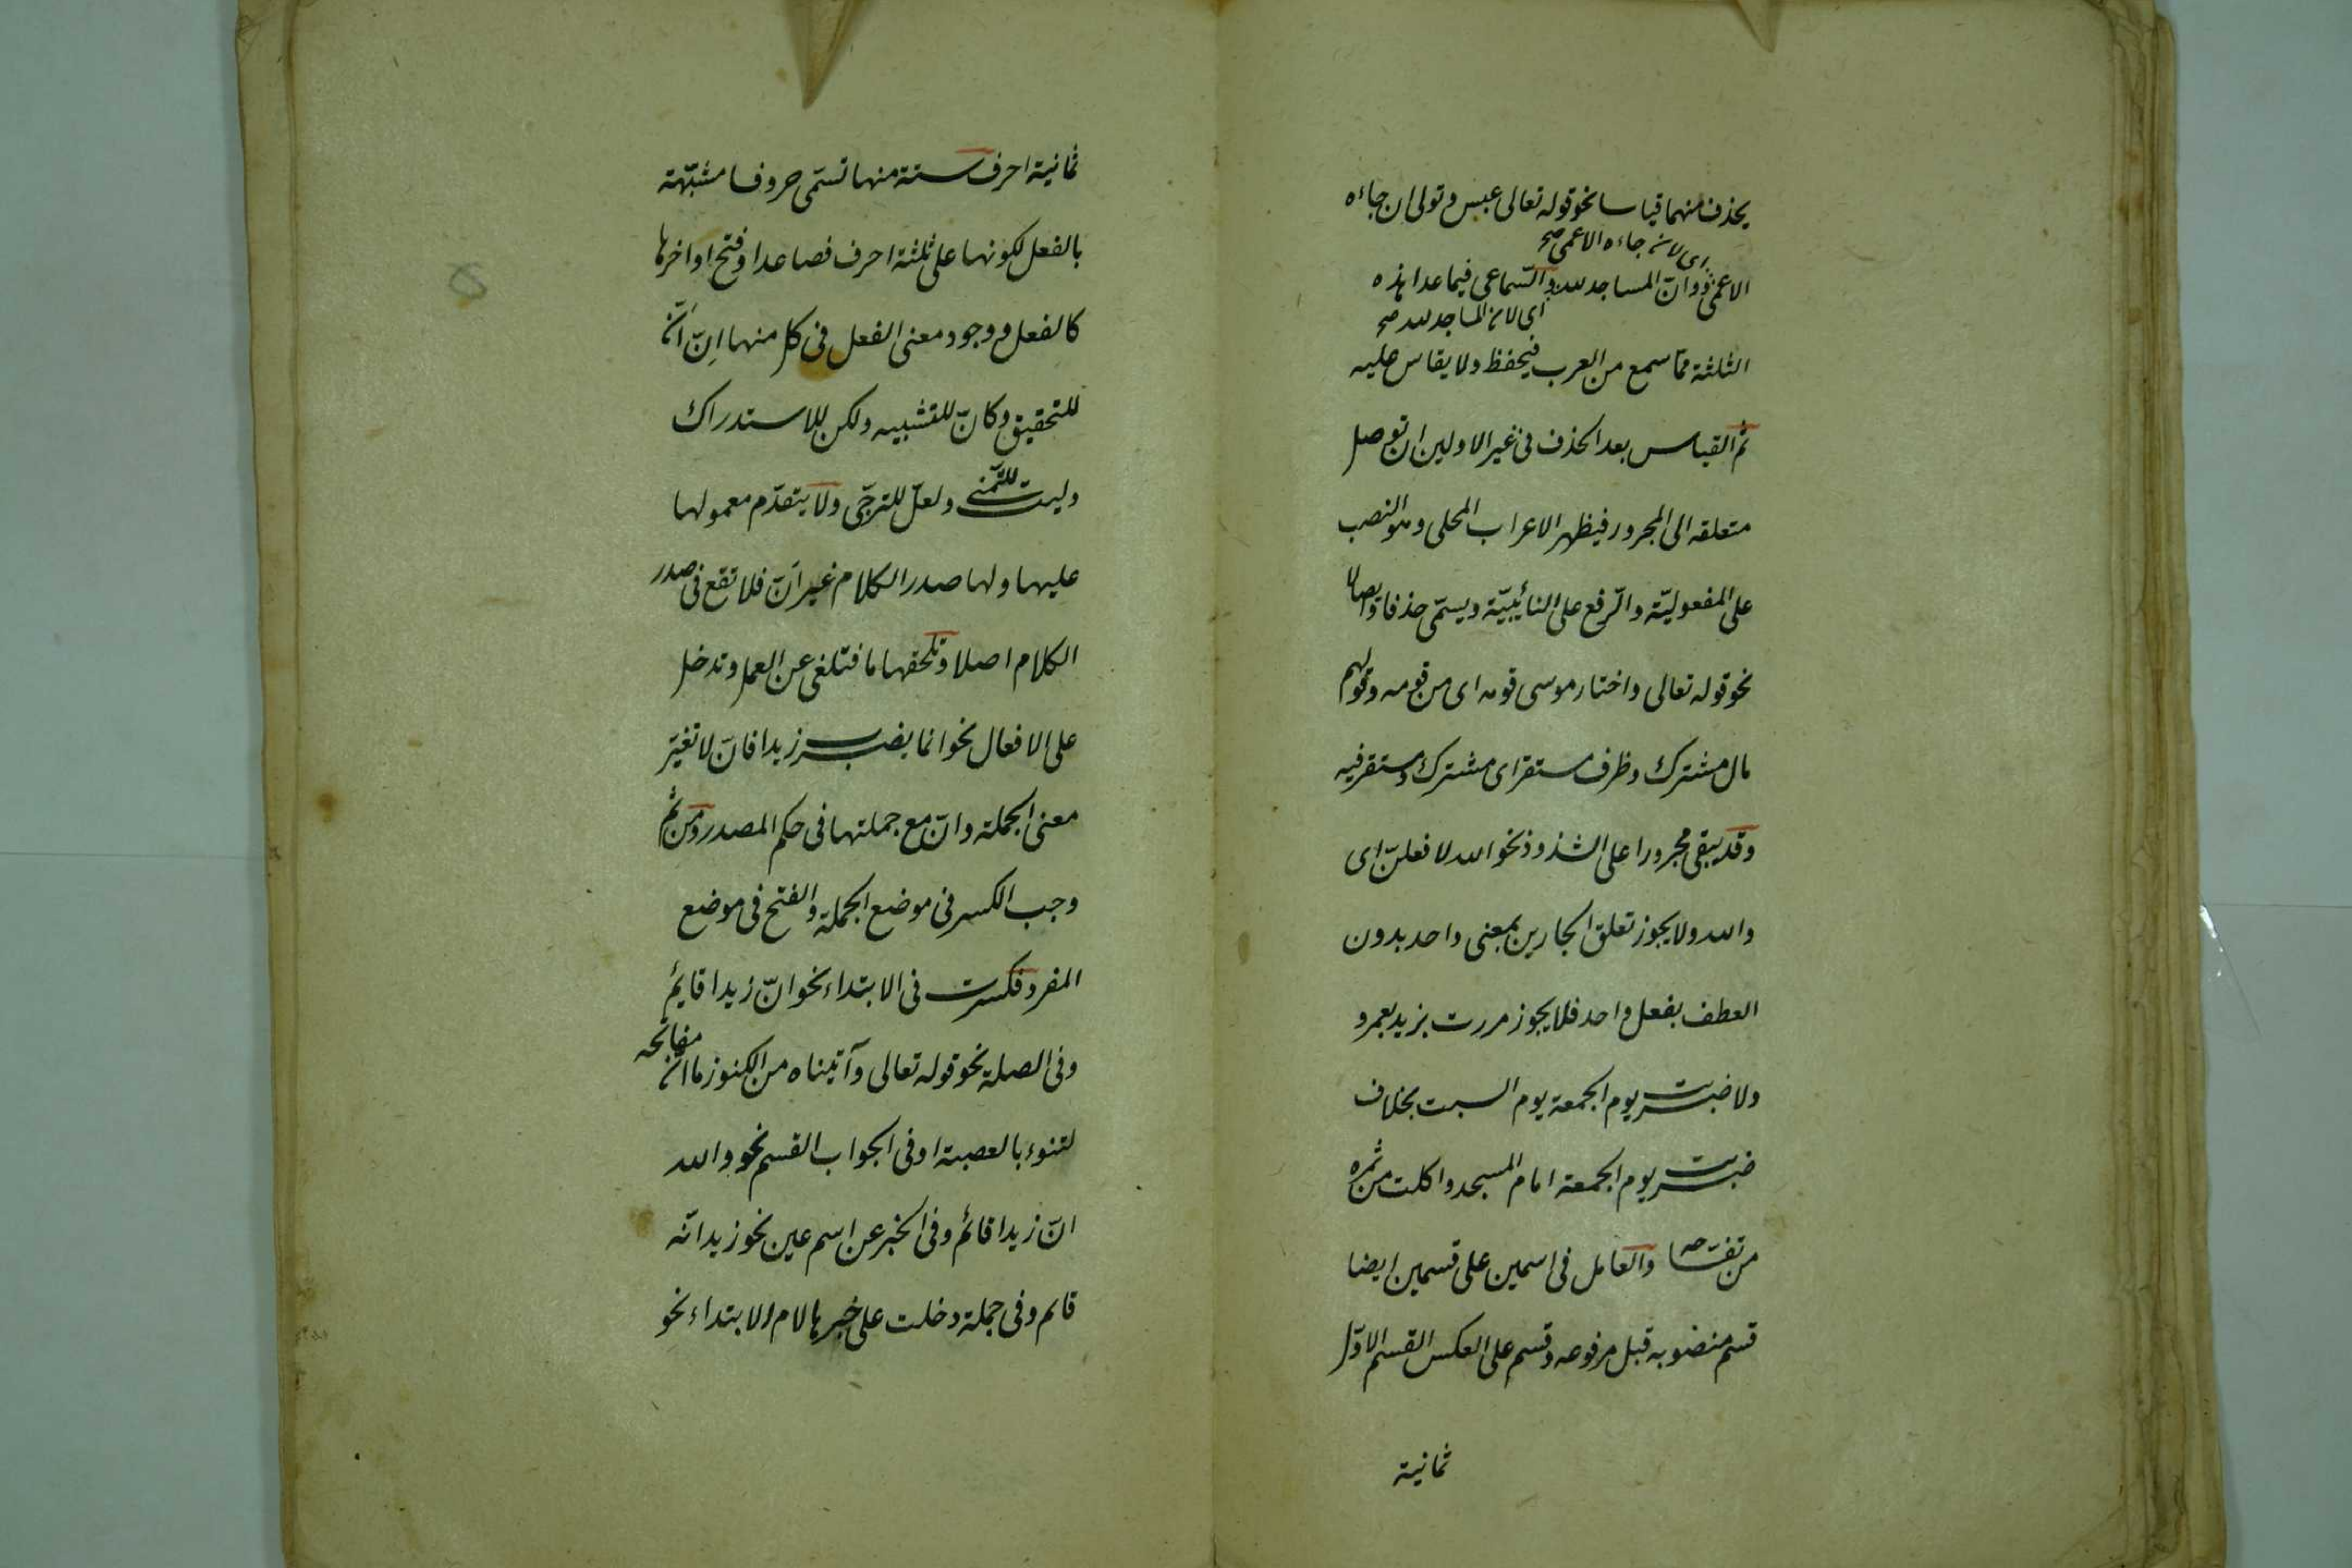 يحذف منهما قياسا نحو قوله تعالى عبس وتولى ان جاءه
اى لانه جاءه الاعمى صح
الاعمى ووانّ المساجد لله والسّماعى فيما عدا هذه
اى لان المساجد لله صح
الثلثة ممّا سمع من العرب فيحفظ ولا يقاس عليه
ثم القياس بعد الحذف فى غير الاولين ان توصل
متعلقه الى المجرور فيظهر الاعراب المحلى وهو النصب
على المفعوليّة والرّفع على النائبيّة ويسمّى حذفا وايصالا
نحو قوله تعالى واختار موسى قومه اى من قومه وقولهم
مال مشترك وظرف مستقر اى مشترك ومستقر فيه
وقد يبقى مجرورا على الشذوذ نحو الله لافعلنّ اى
والله ولا يجوز تعلق الجارين بمعنى واحد بدون
العطف بفعل واحد فلا يجوز مررت بزيد بعمرو
ولا ضربت يوم الجمعة يوم السبت بخلاف
ضربت يوم الجمعة امام المسجد واكلت من ثمره
من تفّاحه والعامل فى اسمين على قسمين ايضا
قسم منصوبه قبل مرفوعه وقسم على العكس القسم الاوّل
ثمانية
ثمانية احرف ستة منها تسمّى حروفا مشبّهة
بالفعل لكونها على ثلثة احرف فصاعدا وفتح اواخرها
كالفعل ووجود معنى الفعل فى كل منها اِنّ اَنّ
للتحقيق وكانّ للتشبيه ولكن للاستدراك
وليت للتّمنى ولعلّ للترجّى ولا يتقدّم معمولها
عليها ولها صدر الكلام غير اَنّ فلا تقع فى صدر
الكلام اصلا وتلحقها ما فتلغى عن العمل وتدخل
على الافعال نحو انما يضرب زيد افانّ لا تغيّر
معنى الجملة وانّ مع جملتها فى حكم المصدر ومن ثمّ
وجب الكسر فى موضع الجملة والفتح فى موضع
المفرد فكسرت فى الابتداء نحو انّ زيدا قايم
وفى الصلة نحو قوله تعالى وآتيناه من الكنوز ما انّ مفاتحه
لتنوء بالعصبة اوفى الجواب القسم نحو والله
انّ زيدا قائم وفى الخبر عن اسم عين نحو زيد انّه
قائم وفى جملة دخلت على خبرها لام الابتداء نحو